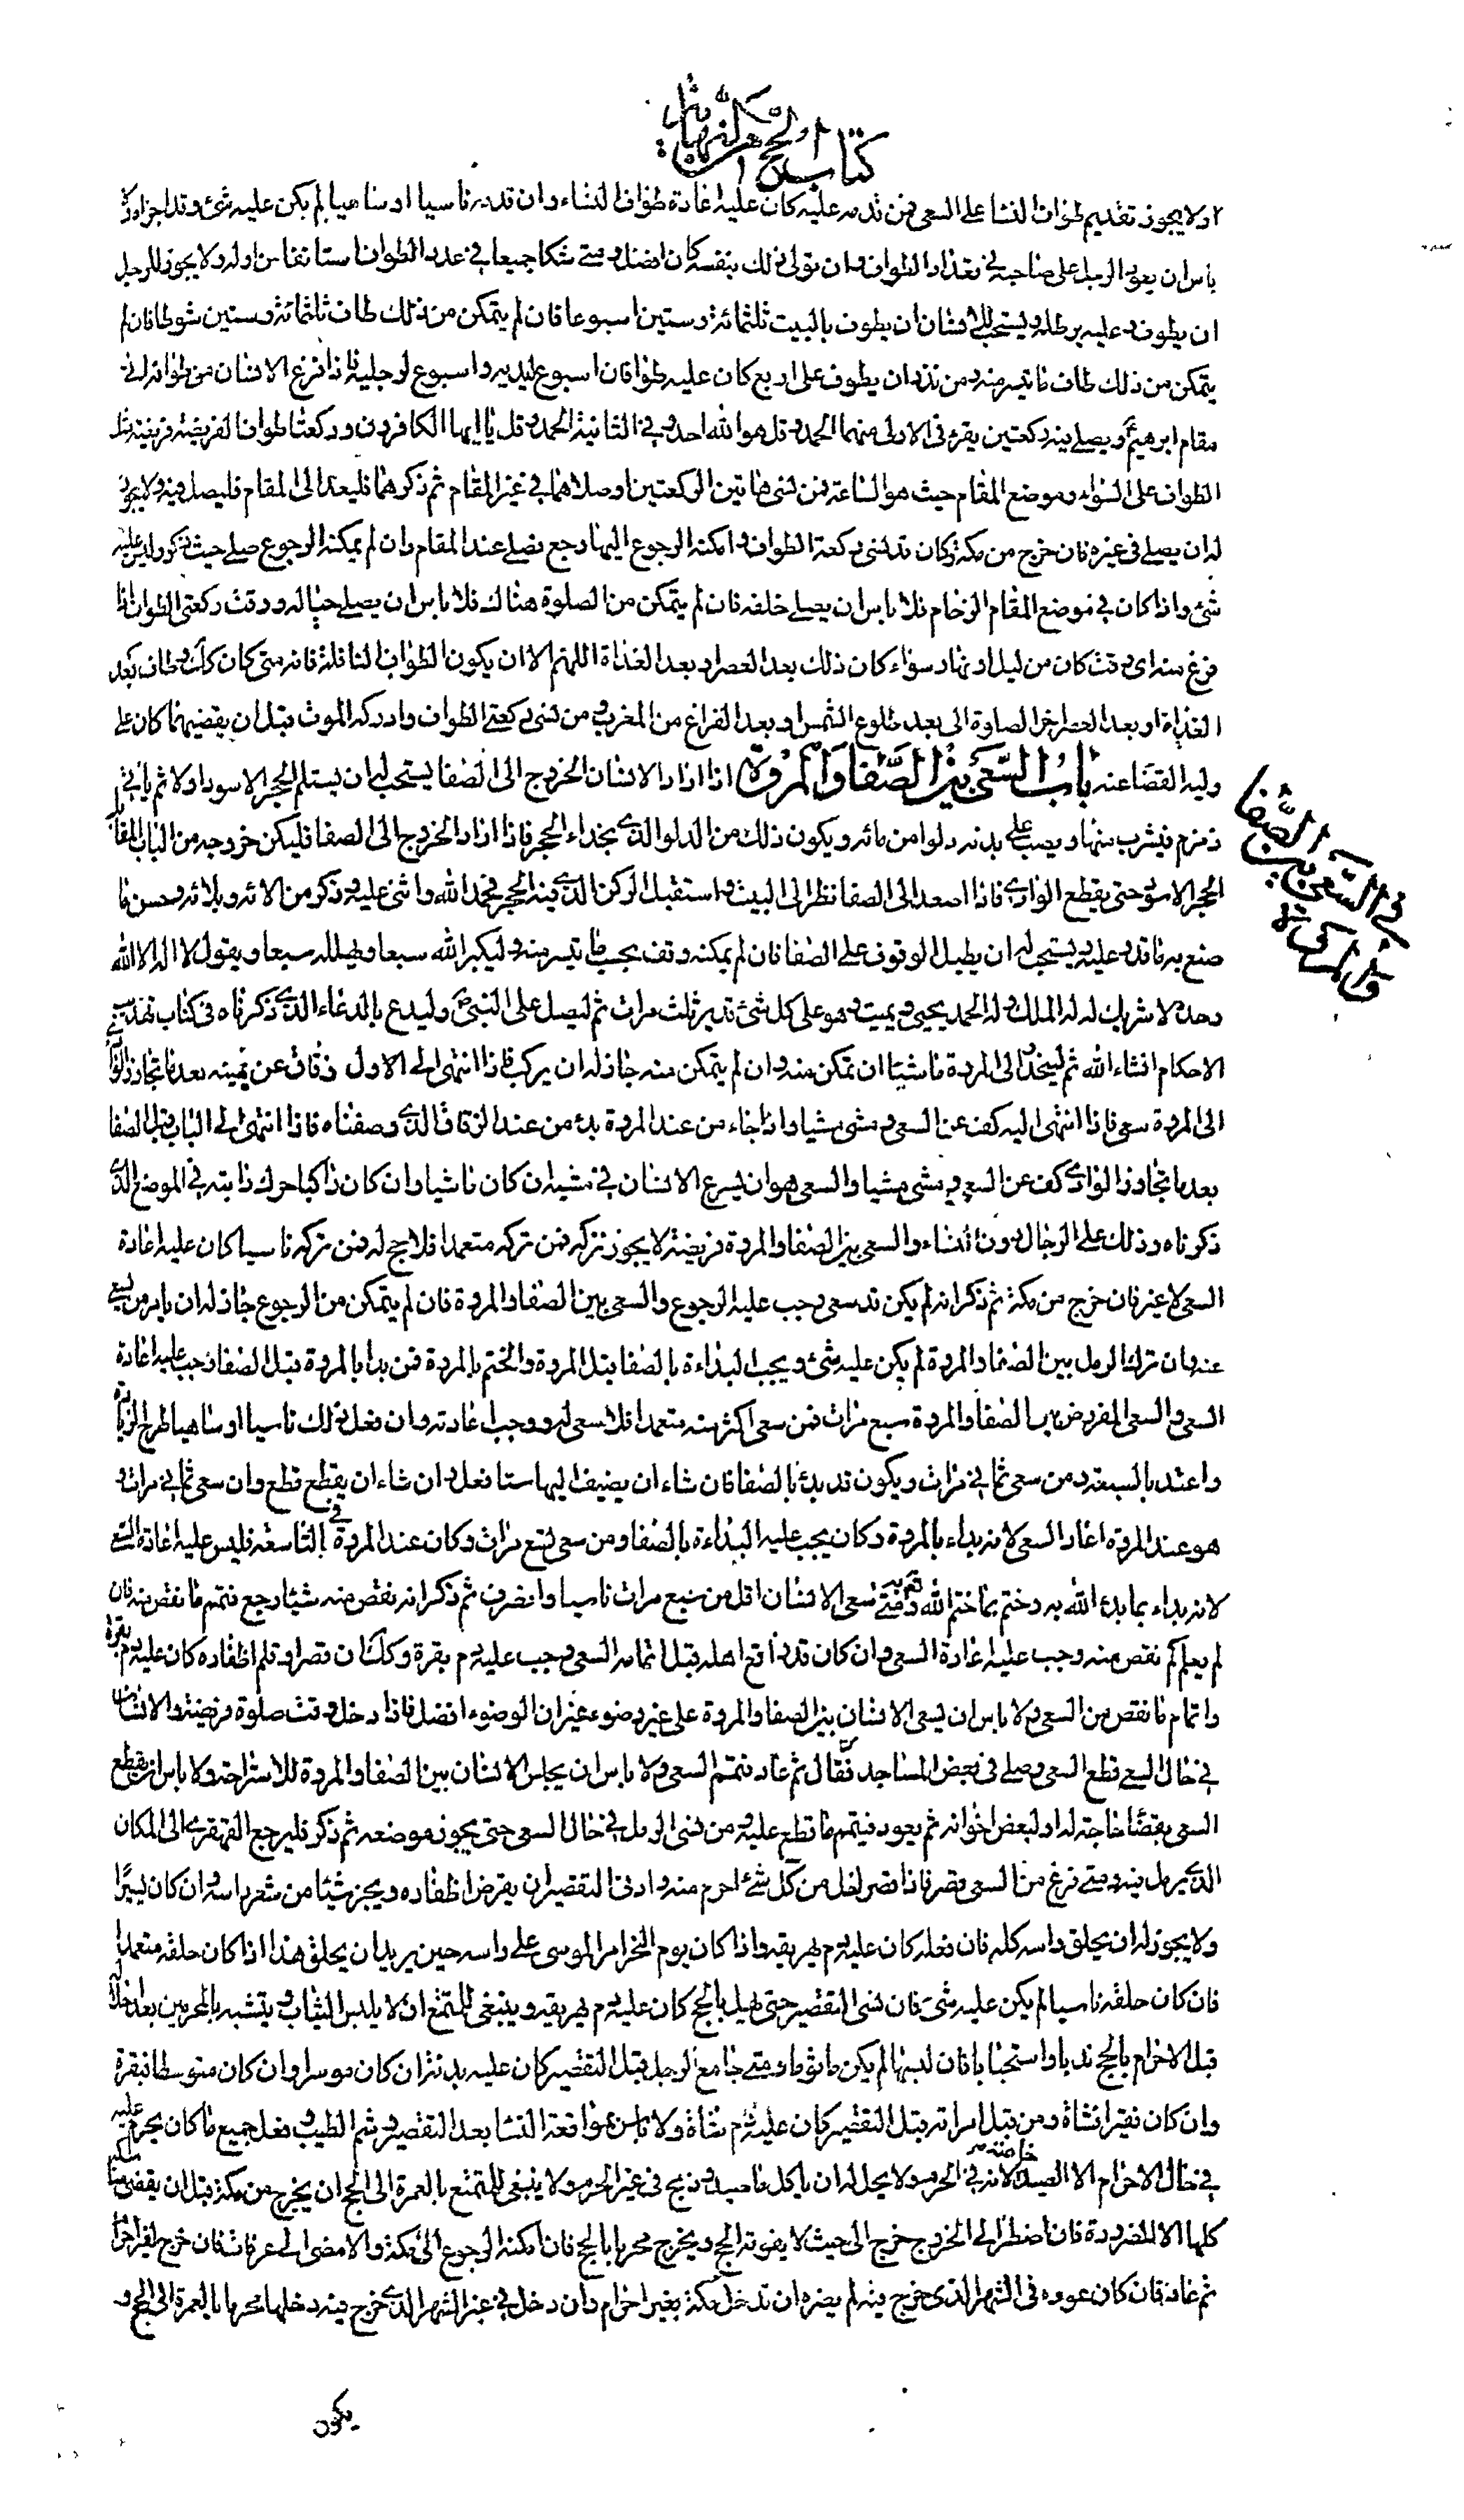 كتاب الحج من النهاية
ولا يجوز تقديم طواف النساء على السعى فمن قدمه عليه كان عليه اعادة طواف النساء وان قدمه ناسيا او ساهيا لم يكن عليه شئ وقد اجزاه ولا
باس ان يعول الرجل على صاحبه في تعداد الطواف وان تولى ذلك بنفسه كان افضل ومتى شكا جميعا في عدد الطواف استانفا من اوله ولا يجوز للرجل
ان يطوف وعليه برطله ويستحب للانسان ان يطوف بالبيت ثلثمائة وستين اسبوعا فان لم يتمكن من ذلك طاف ثلثمائة وستين شوطا فان لم
يتمكن من ذلك طاف ما تيسر منه ومن نذر ان يطوف على اربع كان عليه طوافان اسبوع ليديه واسبوع لرجليه فاذا فرغ الانسان من طوافه اتى
مقام ابرهيم ويصلى فيه ركعتين يقرء في الاولى منهما الحمد وقل هو الله احد وفي الثانية الحمد وقل يا ايها الكافرون وركعتا طواف الفريضة فريضة مثل
الطواف على السواء وموضع المقام حيث هو الساعة فمن نسى هاتين الركعتين او صلاهما في غير المقام ثم ذكرهما فليعد الى المقام فليصل فيه ولا يجوز
له ان يصلى في غيره فان خرج من مكة وكان قد نسى ركعتى الطواف وامكنه الرجوع اليها رجع فصلى عند المقام وان لم يمكنه الرجوع صلى حيث ذكر وليس عليه
شئ واذا كان في موضع المقام الزحام فلا باس ان يصلى خلفه فان لم يتمكن من الصلوة هناك فلا باس ان يصلى حياله ووقت ركعتى الطواف اذا
فرغ منه اى وقت كان من ليل او نهار سواء كان ذلك بعد العصر او بعد الغداة اللهم الا ان يكون الطواف النافلة فانه متى كان كك وطاف بعد
الغداة او بعد العصر اخر الصلوة الى بعد طلوع الشمس او بعد الفراغ من المغرب ومن نسى ركعتى الطواف وادركه الموت قبل ان يقضيهما كان على
وليه القضا عنه باب السعى بين الصفا والمروة اذا اراد الانسان الخروج الى الصفا يستحب له ان يستلم الحجر الاسود اولا ثم ياتى
زمزم فيشرب منها ويصب على بدنه دلوا من مائه ويكون ذلك من الدلو الذى بحذاء الحجر فاذا اراد الخروج الى الصفا فليكن خروجه من الباب المقابل
الحجر الاسود حتى يقطع الوادى فاذا صعد الى الصفا نظر الى البيت واستقبل الركن الذى فيه الحجر فحمد الله واثنى عليه وذكر من الائه وبلائه وحسن ما
صنع به ما قدر عليه ويستحب له ان يطيل الوقوف على الصفا فان لم يمكنه وقف بحسب ما تيسر منه وليكبر الله سبعا ويهلله سبعا ويقول لا اله الا الله
وحده لا شريك له له الملك وله الحمد يحيى ويميت وهو على كل شئ قدير ثلث مرات ثم ليصل على النبى ص وليدع بالدعاء الذى ذكرناه في كتاب تهذيب
الاحكام انشاء الله ثم لينحدر الى المروة ماشيا ان تمكن منه وان لم يتمكن منه جاز له ان يركب فاذا انتهى الى الاول زقاق عن يمينه بعد ما تجاوز الوادى
الى المروة سعى فاذا انتهى اليه كف عن السعى ومشى مشيا واذا جاء من عند المروة بدء من عند الزقاق الذى وصفناه فاذا انتهى الى الباب قبل الصفا
بعد ما تجاوز الوادى كف عن السعى ومشى مشيا والسعى هو ان يسرع الانسان في مشيه ان كان ماشيا وان كان راكبا حرك دابته في الموضع الذى
ذكرناه وذلك على الرجال دون النساء والسعى بين الصفا والمروة فريضة لا يجوز تركه فمن تركه متعمدا فلا حج له فمن تركه ناسيا كان عليه اعادة
السعى لا غير فان خرج من مكة ثم ذكر انه لم يكن قد سعى وجب عليه الرجوع والسعى بين الصفا والمروة فان لم يتمكن من الرجوع جاز له ان يامر من يسعى
عنه وان ترك الرمل بين الصفا والمروة لم يكن عليه شئ ويجب البداءة بالصفا قبل المروة والختم بالمروة فمن بدا بالمروة قبل الصفا وجب عليه اعادة
السعى والسعى المفروض بين الصفا والمروة سبع مرات فمن سعى اكثر منه متعمدا فلا سعى له ووجب اعادته وان فعل ذلك ناسيا او ساهيا طرح الزيادة
واعتد بالسبعة ومن سعى ثمانى مرات ويكون قد بدئ بالصفا فان شاء ان يضيف اليها ستا فعل وان شاء ان يقطع قطع وان سعى ثمانى مرات و
هو عند المروة اعاد السعى لانه بداء بالمروة وكان يجب عليه البداءة بالصفا ومن سعى تسع مرات وكان عند المروة في التاسعة فليس عليه اعادة السعى
لانه بداء بما بدء الله به وختم بما ختم الله به ومتى سعى الانسان اقل من سبع مرات ناسيا وانصرف ثم ذكر انه نقص منه شيئا رجع فتمم ما نقص منه فان
لم يعلم كم نقص منه وجب عليه اعادة السعى وان كان قد واقع اهله قبل اتمامه السعى وجب عليه دم بقرة وكك ان قصر او قلم اظفاره كان عليه دم بقرة
واتمام ما نقص من السعى ولا باس ان يسعى الانسان بين الصفا والمروة على غير وضوء غير ان الوضوء افضل فاذا دخل وقت صلوة فريضة والانسان
في حال السعى قطع السعى وصلى في بعض المساجد ثم عاد فتمم السعى ولا باس ان يجلس الانسان بين الصفا والمروة للاستراحة ولا باس ان يقطع
السعى بقضا حاجة له او لبعض اخوانه ثم يعود فيتمم ما قطع عليه ومن نسى الرمل في حال السعى حتى يجوز موضعه ثم ذكر فليرجع القهقرى الى المكان
الذى يرمل فيه ومتى فرغ من السعى قصر فاذا قصر احل من كل شئ احرم منه وادنى التقصير ان يقرض اظفاره ويجز شيئا من شعر راسه وان كان يسيرا
ولا يجوز له ان يحلق راسه كله فان فعله كان عليه دم يهريقه واذا كان يوم النحر امر الموسى على راسه حين يريد ان يحلق هذا اذا كان حلقه متعمدا
فان كان حلقه ناسيا لم يكن عليه شئ فان نسى التقصير حتى يهل بالحج كان عليه دم يهريقه وينبغى للمتمتع ان لا يلبس الثياب ويتشبه بالمحرمين بعد احلاله
قبل الاحرام بالحج ندبا واستحبابا فان لبسها لم يكن ماثوما ومتى جامع الرجل قبل التقصير كان عليه بدنة ان كان موسرا وان كان متوسطا فبقرة
وان كان فقيرا فشاة ومن قبل امراته قبل التقصير كان عليه دم شاة ولا باس بمواقعة النسا بعد التقصير وشم الطيب وفعل جميع ما كان يحرم عليه
في حال الاحرام الا الصيد خاصة لانه في الحرم ولا يحل له ان ياكل ما صيد وذبح في غير الحرم ولا ينبغى للمتمتع بالعمرة الى الحج ان يخرج من مكة قبل ان يقضى مناسكه
كلها الا للضرورة فان اضطر الى الخروج خرج الى حيث لا يفوته الحج ويخرج محرما بالحج فان امكنه الرجوع الى مكة والا مضى الى عرفات فان خرج بغير احرام
ثم عاد فان كان عوده في الشهر الذى خرج فيه لم يضره ان تدخل مكة بغير احرام وان دخل في غير الشهر الذى خرج فيه دخلها محرما بالعمرة الى الحج و
يكون
في السعى بين الصفا